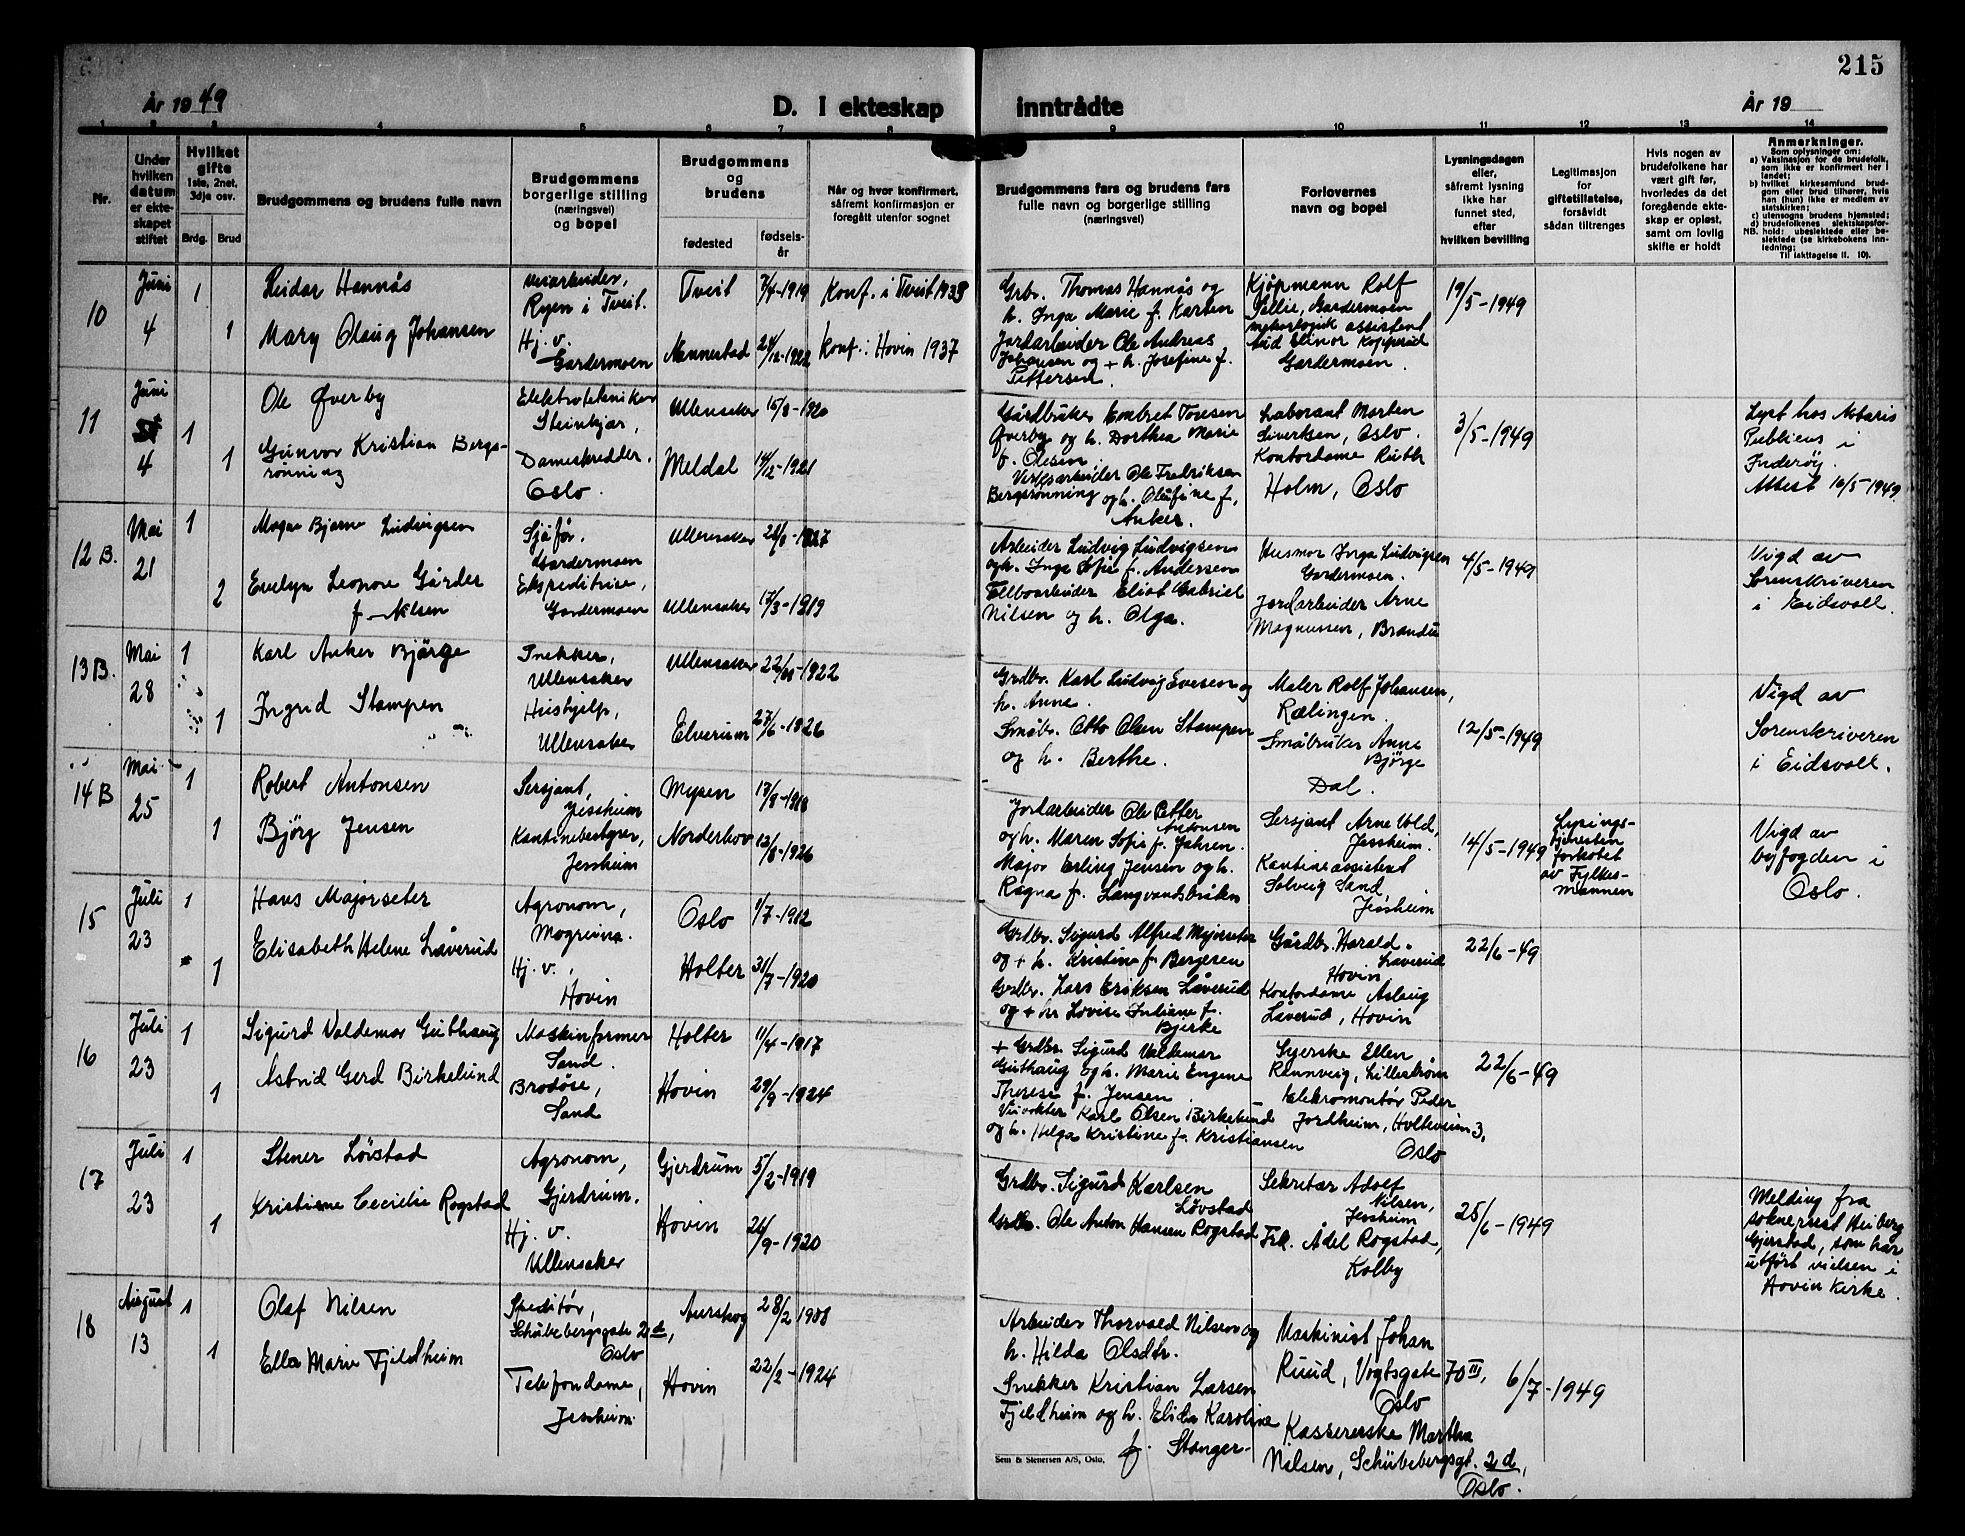 215
År 1949
D. I ekteskap inntrådte
År 19
1 2 3 4 5 6 7 8 9 10 11 12 13 14
Nr.
Under hvilken datum er ekteskapet stiftet
Hvilket gifte
1ste, 2net, 3dje osv.
Brdg. Brud
Brudgommens og brudens fulle navn
Brudgommens borgerlige stilling (næringsvei) og bopel
Brudgommens og brudens
fødested
fødselsår
Når og hvor konfirmert, såfremt konfirmasjon er foregått utenfor sognet
Brudgommens fars og brudens fars fulle navn og borgerlige stilling (næringsvei)
Forlovernes navn og bopel
Lysningsdagen eller, såfremt lysning ikke har funnet sted, efter hvilken bevilling
Legitimasjon for giftetillatelse, forsåvidt sådan tiltrenges
Hvis nogen av brudefolkene har vært gift før, hvorledes da det foregående ekteskap er opløst, samt om lovlig skifte er holdt
Anmerkninger.
Som oplysninger om:
a) Vaksinasjon for de brudefolk, som ikke er konfirmert her i landet;
b) hvilket kirkesamfund brudgom eller brud tilhører, hvis han (hun) ikke er medlem av statskirken;
c) utensogns brudens hjemsted;
d) brudefolkenes slektskapsforhold: ubeslektede eller beslektede (se kirkebokens innledning;
NB.
Til iakttagelse II. 10).
10
Juni
4
1
1
Reidar Hannås
Mary Olaug Johansen
Veiarbeider,
Ryen i Tveit.
Hj. v.
Gardermoen
Tveit 7/4-1919
Nannestad 24/12-1922
Konf. i Tveit 1933
Konf. i Hovin 1937
Grbr. Thomas Hannås og
h. Inga Marie f. Karten
Jordarbeider Ole Andreas
Johansen og + h. Josefine f.
Pettersen.
Kjøpmann Rolf
Sellie, Gardermoen
assistent
Aud Elinor Kopperud
Gardermoen.
19/5-1949
11
Juni
4
1
1
Ole Øverby
Gunvor Kristian Bergsrønning
Elektrotekniker
Steinkjer,
Dameskredder.
Oslo.
Ullensaker 15/8-1920
Meldal 14/12-1921
Gårdbruker Embret Toresen
Øverby og h. Dorthea Marie
f. Olesen
Verksarbeider Ole Fredriksen
Bergsrønning og h. Olufine f.
Anker.
Laborant Morten
Sivertsen, Oslo.
Kontordame Ruth
Holm, Oslo
3/5-1949
Lyst hos Notarius
Publicus i
Inderøy.
Attest 10/5 1949
12 B.
Mai
21
1
2
Magne Bjarne Ludvigsen
Evelyn Leonore Gårder
f. Nilsen
Sjåfør.
Gardermoen
Ekspeditrise,
Gardermoen
Ullensaker 24/8-1927
Ullensaker 17/3-1919
Arbeider Ludvig Ludvigsen
og h. Inga Sofie f. Andersen
Tellboarbeider Eliot Gabriel
Nilsen og h. Olga.
Husmor Inga Ludvigsen
Gardermoen.
Jordarbeider Arne
Magnussen, Brandu
4/5-1949
Vigd av
Sorenskriveren
i Eidsvoll.
13 B.
Mai
28
1
1
Karl Anker Bjørge
Ingrid Stampen
Snekker,
Ullensaker
Hushjelp,
Ullensaker
Ullensaker 22/10-1922
Elverum 27/6-1926
Grdbr. Karl Ludvig Evesen og
h. Anne.
Småbr. Otto Olsen Stampen
og h. Berthe.
Maler Rolf Johansen,
Rælingen.
Småbruker Anne
Bjørge
Dal.
12/5-1949
Vigd av
Sorenskriveren
i Eidsvoll.
14 B
Mai
25
1
1
Robert Antonsen
Bjørg Jensen
Sersjant,
Jessheim
Kantinebestyrer,
Jessheim
Mysen 17/8-1918
Norderhov 13/8-1926
Jordarbeider Ole Petter
Antonsen
og h. Maren Sofie f. Jahren.
Major Erling Jensen og h.
Ragna f. Langvandsbråten
Sersjant Arne Vold,
Jessheim.
Kantineassistent
Solveig Sand,
Jessheim
14/5-1949
Lysings-
tjenesten
forkotet
av Fylkes-
mannen
Vigd av
byfogden i
Oslo.
15
Juli
23
1
1
Hans Majorseter
Elisabeth Helene Låverud
Agronom,
Mogreina.
Hj. v.,
Hovin
Oslo 1/7-1912
Holter 31/7-1920
Grdbr. Sigurd Alfred Majorseter
og + h. Kristine f. Bergesen
Grdbr. Lars Eriksen Låverud
og + h. Lovise Juliane f.
Bjerke
Gårdbr. Harald
Låverud
Hovin
Kontordame Aslaug
Låverud, Hovin
22/6-49
16
Juli
23
1
1
Sigurd Valdemar Guthaug
Astrid Gerd Birkelund
Maskinformer
Sand.
Brodøse,
Sand
Holter 11/4-1917
Hovin 29/9-1924
+ Grdbr. Sigurd Valdemar
Guthaug og h. Marie Engene
Therese f. Jensen
Veivokter Karl Olsen Birkelund
og h. Helga Kristine f. Kristiansen
Syerske Ellen
Rannveig, Lillestrøm
Elekromontør Peder
Jordheim, Holtevein 3,
Oslo
22/6-49
17
Juli
23
1
1
Stener Løvstad
Kristiane Cecilie Rogstad
Agronom,
Gjerdrum.
Hj. v.
Ullensaker
Gjerdrum 5/2-1919
Hovin 26/9-1920
Grdbr. Sigurd Karlsen
Løvstad
Grdbr. Ole Anton Hansen Rogstad
Sekretær Adolf
Nilsen,
Jessheim
Frk. Ådel Rogstad,
Kolby
25/6-1949
Melding fra
sokneprest Heiberg
Gjerstad, som har
utført vielsen i
Hovin kirke.
18
August
13
1
1
Olaf Nilsen
Ella Marie Fjeldheim
Speditør,
Schübebergsgate 2d,
Oslo
Telefondame,
Jessheim.
Aurskog 28/2 1908
Hovin 22/2-1924
Arbeider Thorvald Nilsen og
h. Hilda Olsdtr.
Snekker Kristian Larsen
Fjeldheim og h. Elida Karoline
f. Stanger.
Maskinist Johan
Ruud, Vogtsgate 70 III,
Oslo
Kassererske Martha
Nilsen, Schübebergsgt. 2d,
Oslo.
6/7-1949
Sem & Stenersen A/S, Oslo.